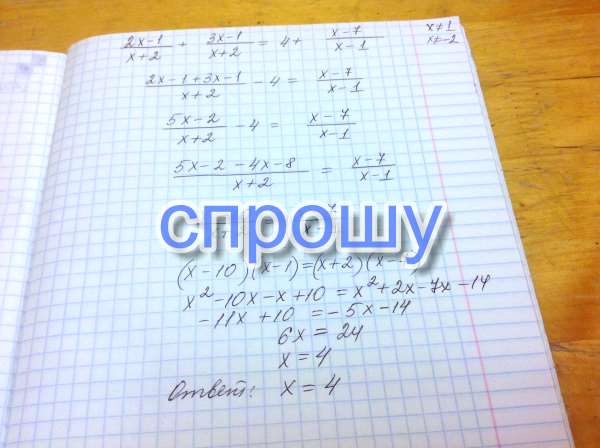 (2x-1)/(x+2) + (3x-1)/(x+2) = 4 + (x-7)/(x-1) x≠1 x≠-2
(2x-1+3x-1)/(x+2) - 4 = (x-7)/(x-1)
(5x-2)/(x+2) - 4 = (x-7)/(x-1)
(5x-2-4x-8)/(x+2) = (x-7)/(x-1)
спрошу
(x-10)(x-1)=(x+2)(x-
x²-10x-x+10 = x²+2x-7x-14
-11x+10 = -5x-14
6x = 24
x = 4
Ответ: x = 4